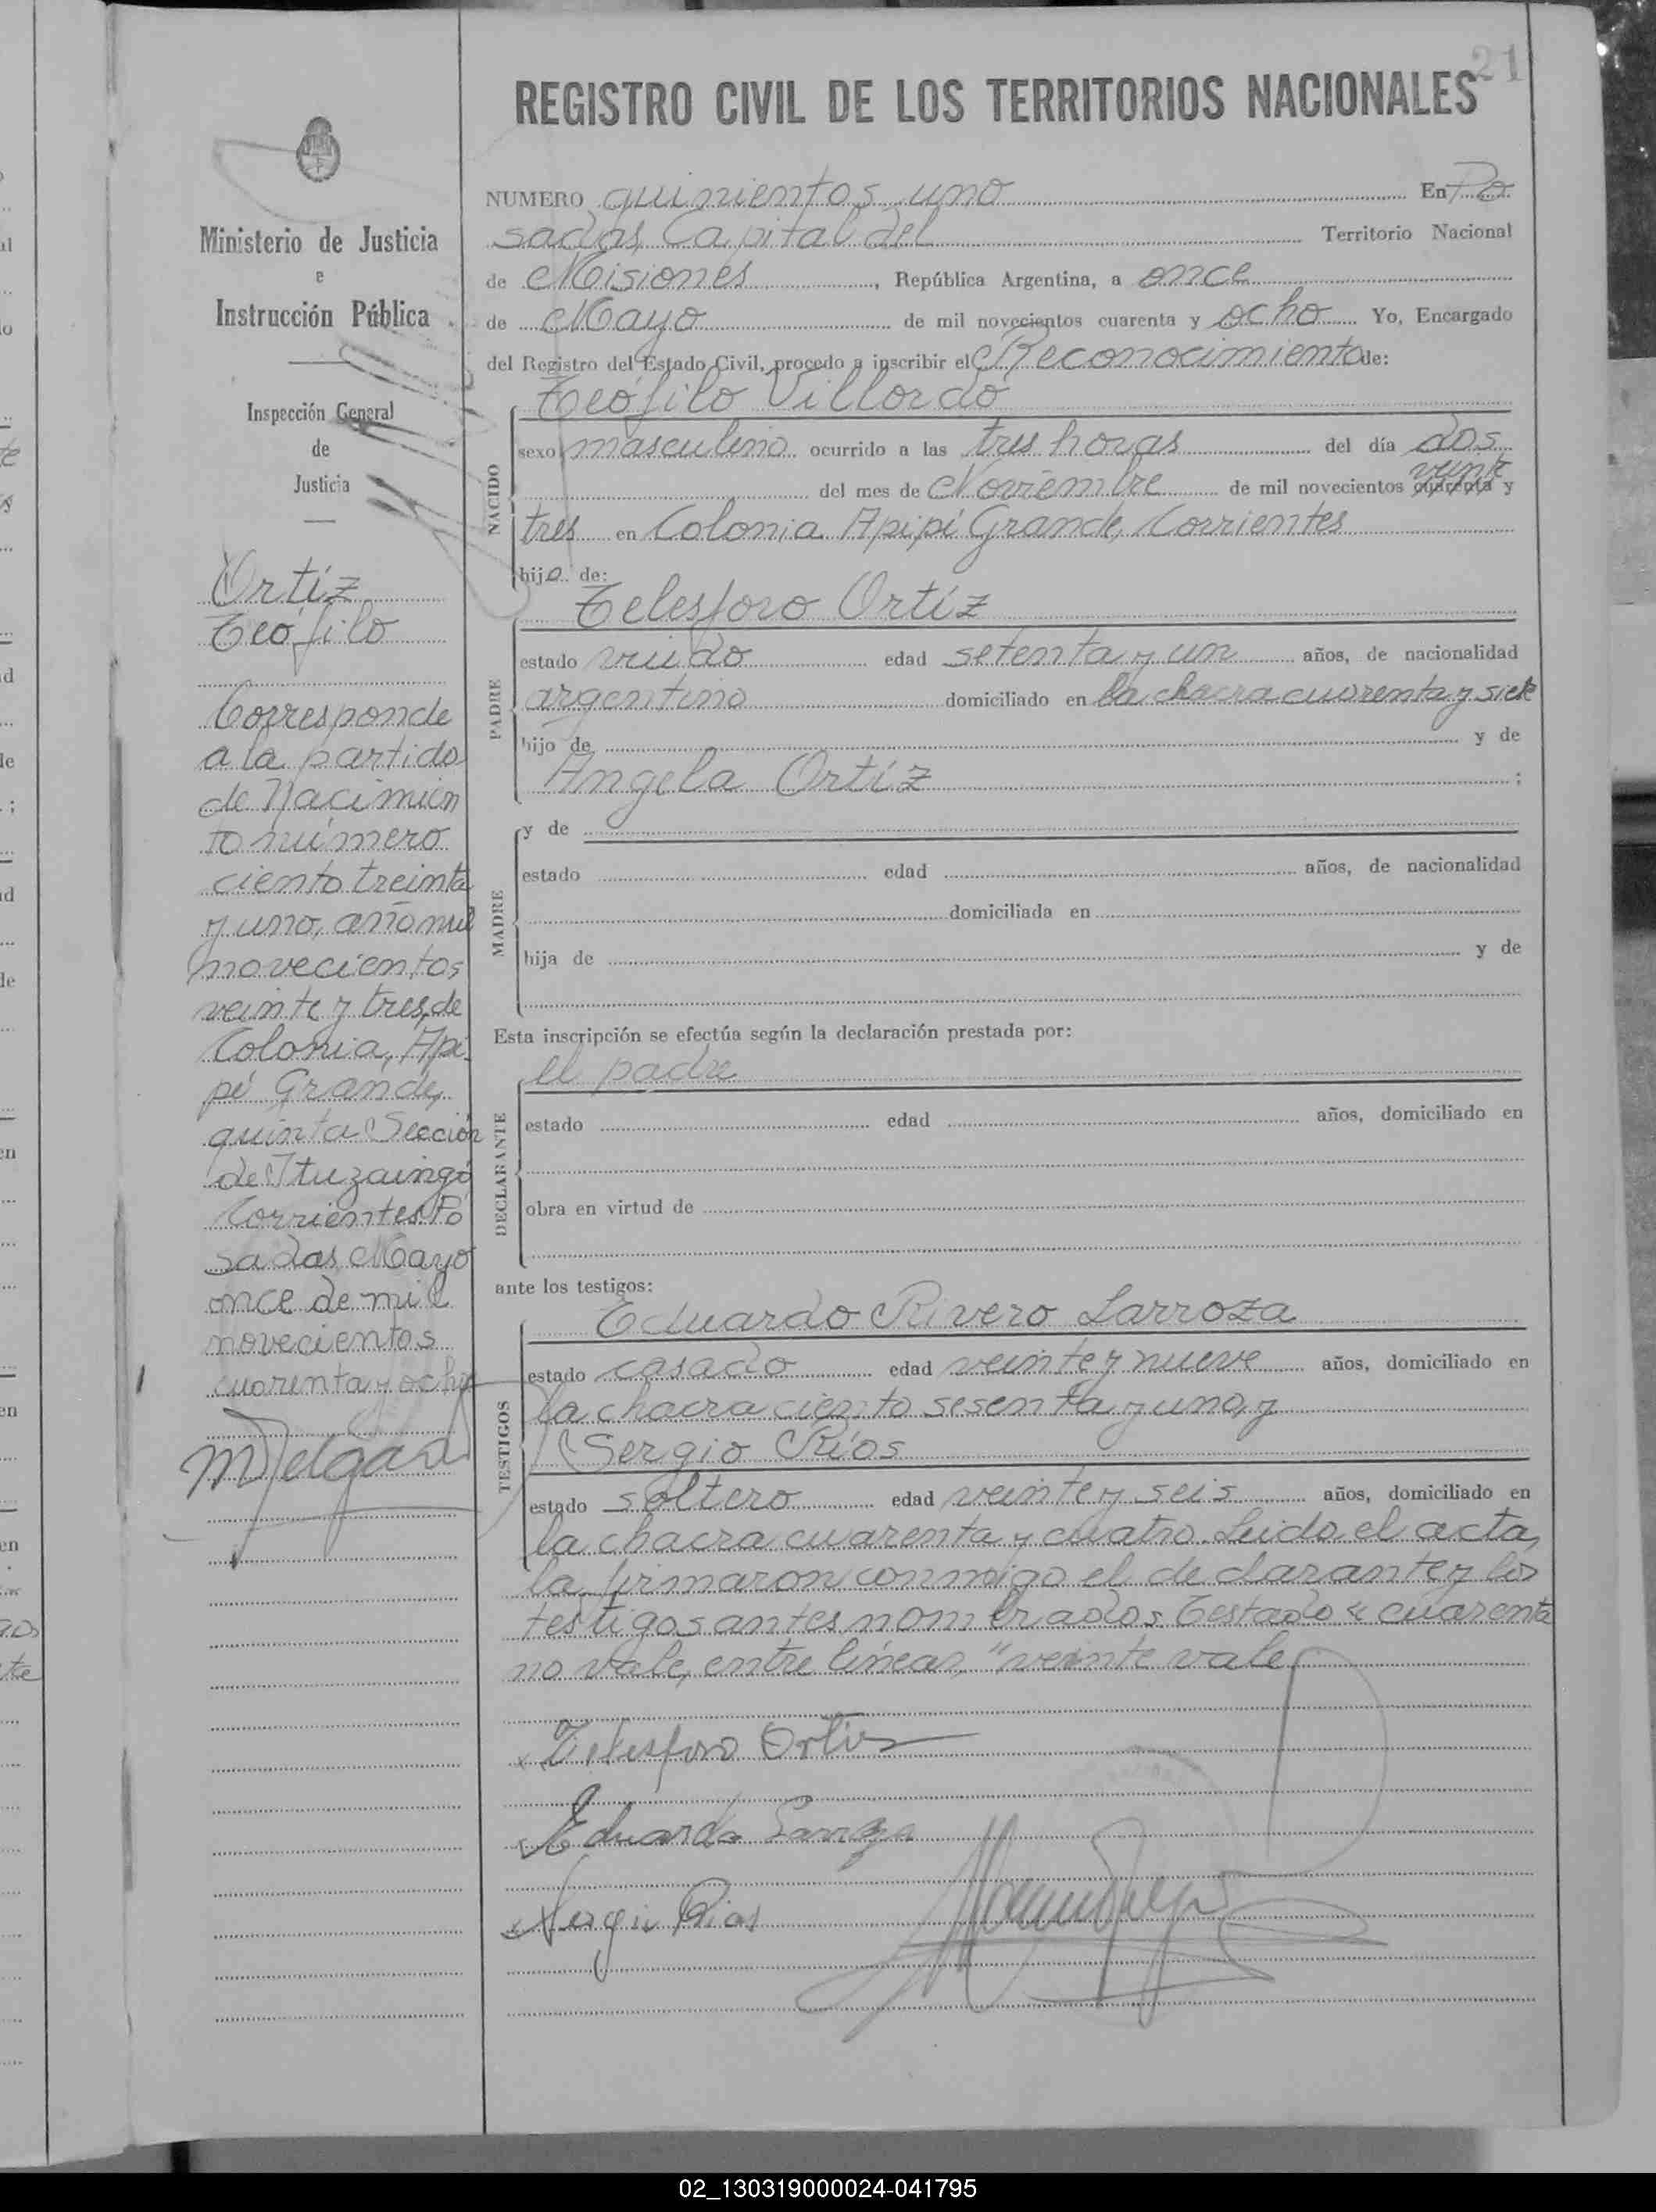 21
REGISTRO CIVIL DE LOS TERRITORIOS NACIONALES
Ministerio de Justicia
e
Instrucción Pública
Inspección General
de
Justicia
Ortíz
Teófilo
Corresponde
a la partida
de Nacimien
to número
ciento treinta
y uno, año mil
novecientos
veinte y tres, de
Colonia, Api
pé Grande,
quinta Sección
de Ituzaingó
Corrientes. Po
sadas, Mayo
once de mil
novecientos
cuarenta y ocho
NUMERO quinientos uno En Po
sadas, Capital del Territorio Nacional
de Misiones, República Argentina, a once
de Mayo de mil novecientos cuarenta y ocho Yo, Encargado
del Registro del Estado Civil, procedo a inscribir el Reconocimiento de:
NACIDO
Teófilo Villordo
sexo masculino ocurrido a las tres horas del día dos
veinte
del mes de Noviembre de mil novecientos cuarenta y
tres en Colonia Apipé Grande, Corrientes
hijo de:
PADRE
Telesforo Ortíz
estado viudo edad setenta y un años, de nacionalidad
argentino domiciliado en la chacra cuarenta y siete
hijo de y de
Angela Ortíz ;
MADRE
y de
estado edad años, de nacionalidad
domiciliada en
hija de y de
Esta inscripción se efectúa según la declaración prestada por:
DECLARANTE
el padre
estado edad años, domiciliado en
obra en virtud de
ante los testigos:
TESTIGOS
Eduardo Rivero Larroza
estado casado edad veinte y nueve años, domiciliado en
la chacra ciento sesenta y uno, y
Sergio Ríos
estado soltero edad veinte y seis años, domiciliado en
la chacra cuarenta y cuatro. Leido el acta,
la firmaron conmigo el declarante y los
testigos antes nombrados. Testado "cuarenta
no vale, entre líneas, "veinte vale
Telesforo Ortiz
Eduardo Larroza
Sergio Rios
02_130319000024-041795